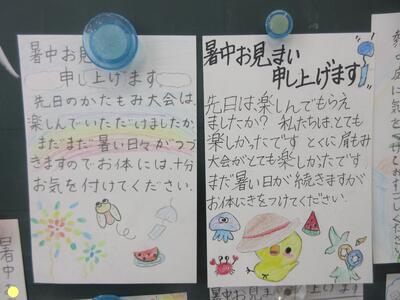 暑中お見
申し上げます
先日のかたもみ大会は、
楽しんでいただけましたか
まだまだ暑い日々がつづ
きますのでお体には、十分
お気を付けてください.
暑中お見まい
申し上げます
先日は、楽しんでもらえ
ましたか? 私たちは、とても
楽しかったです とくに肩もみ
大会がとても楽しかったです
まだ暑い日が続きますが
お体にきをつけてください.
暑中
暑中お見
上げます